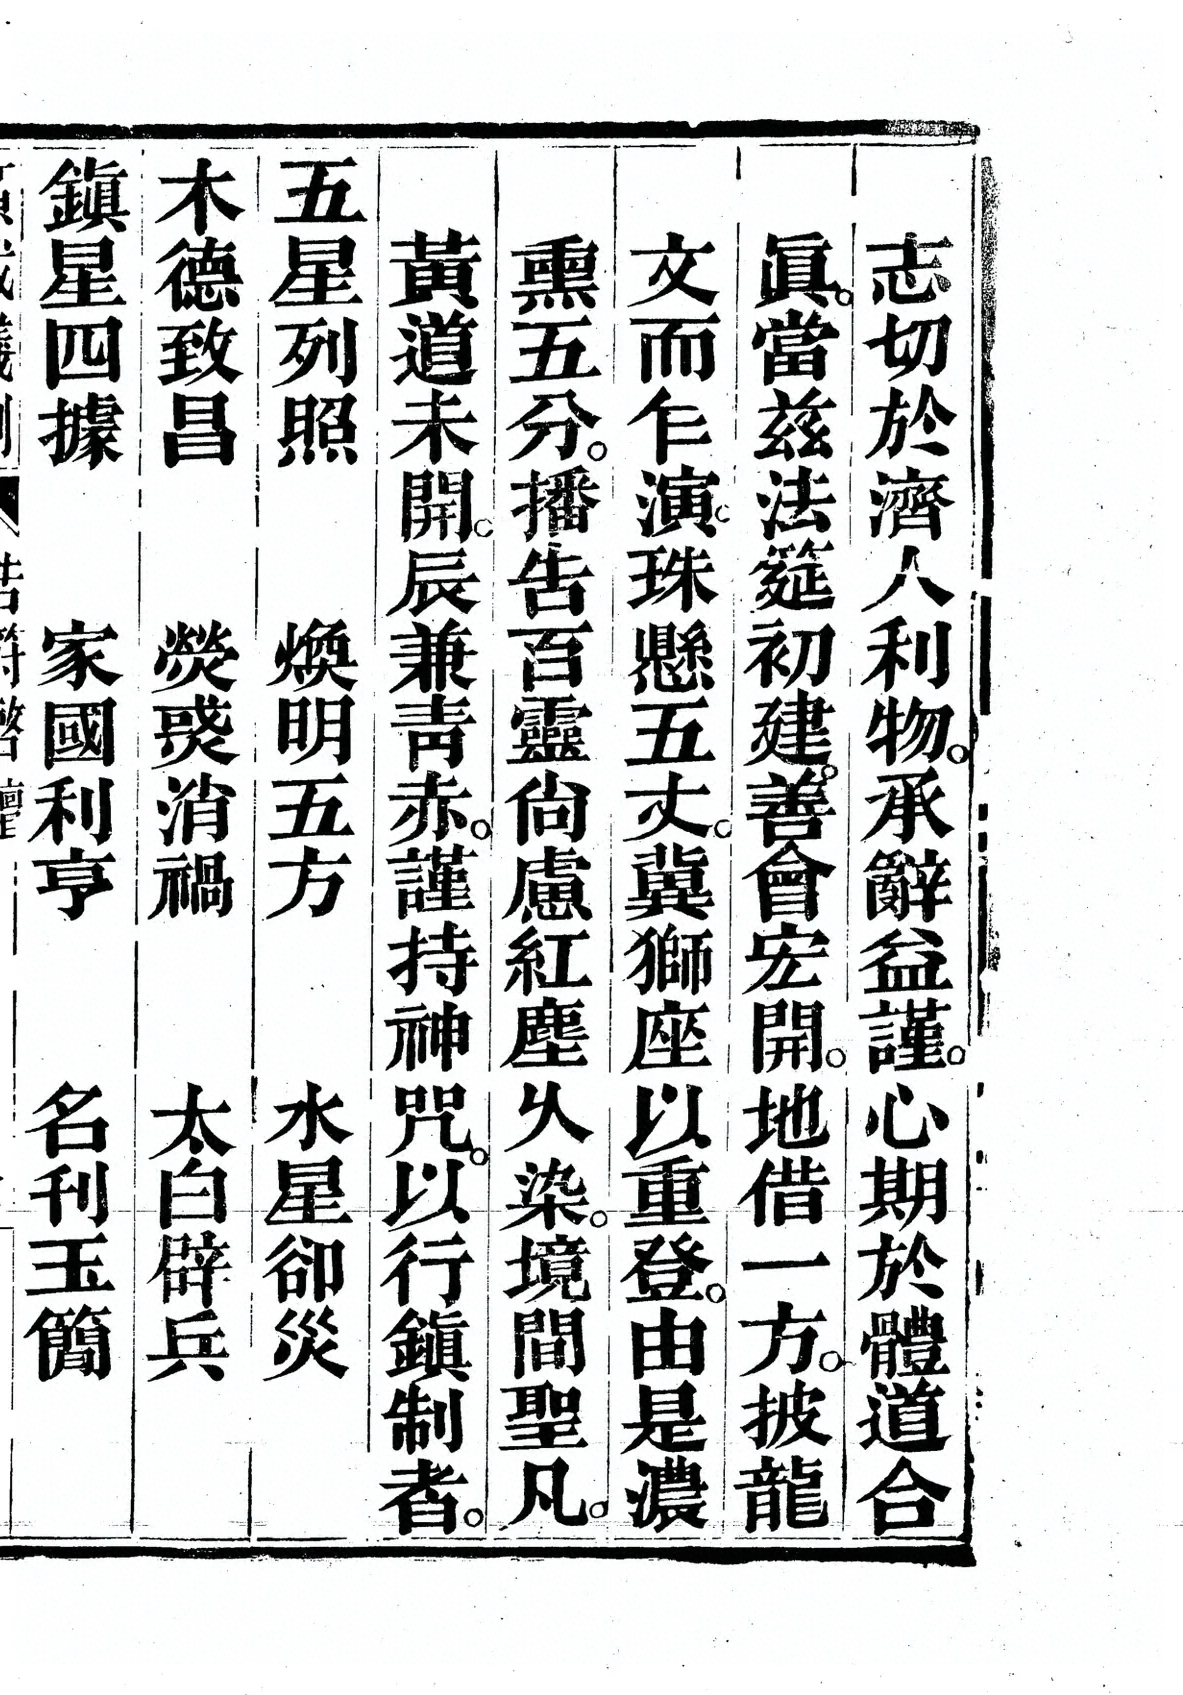 志切於濟人利物。承辭益謹。心期於體道合
眞。當茲法筵初建。善會宏開。地借一方。披龍
文而乍演。珠懸五丈。冀獅座以重登。由是濃
熏五分。播告百靈尙慮紅塵久染。境間聖凡。
黃道未開。辰兼靑赤。謹持神咒。以行鎭制者。
五星列照　煥明五方　水星卻災
木德致昌　熒惑消禍　太白辟兵
鎭星四據　家國利亨　名刊玉簡